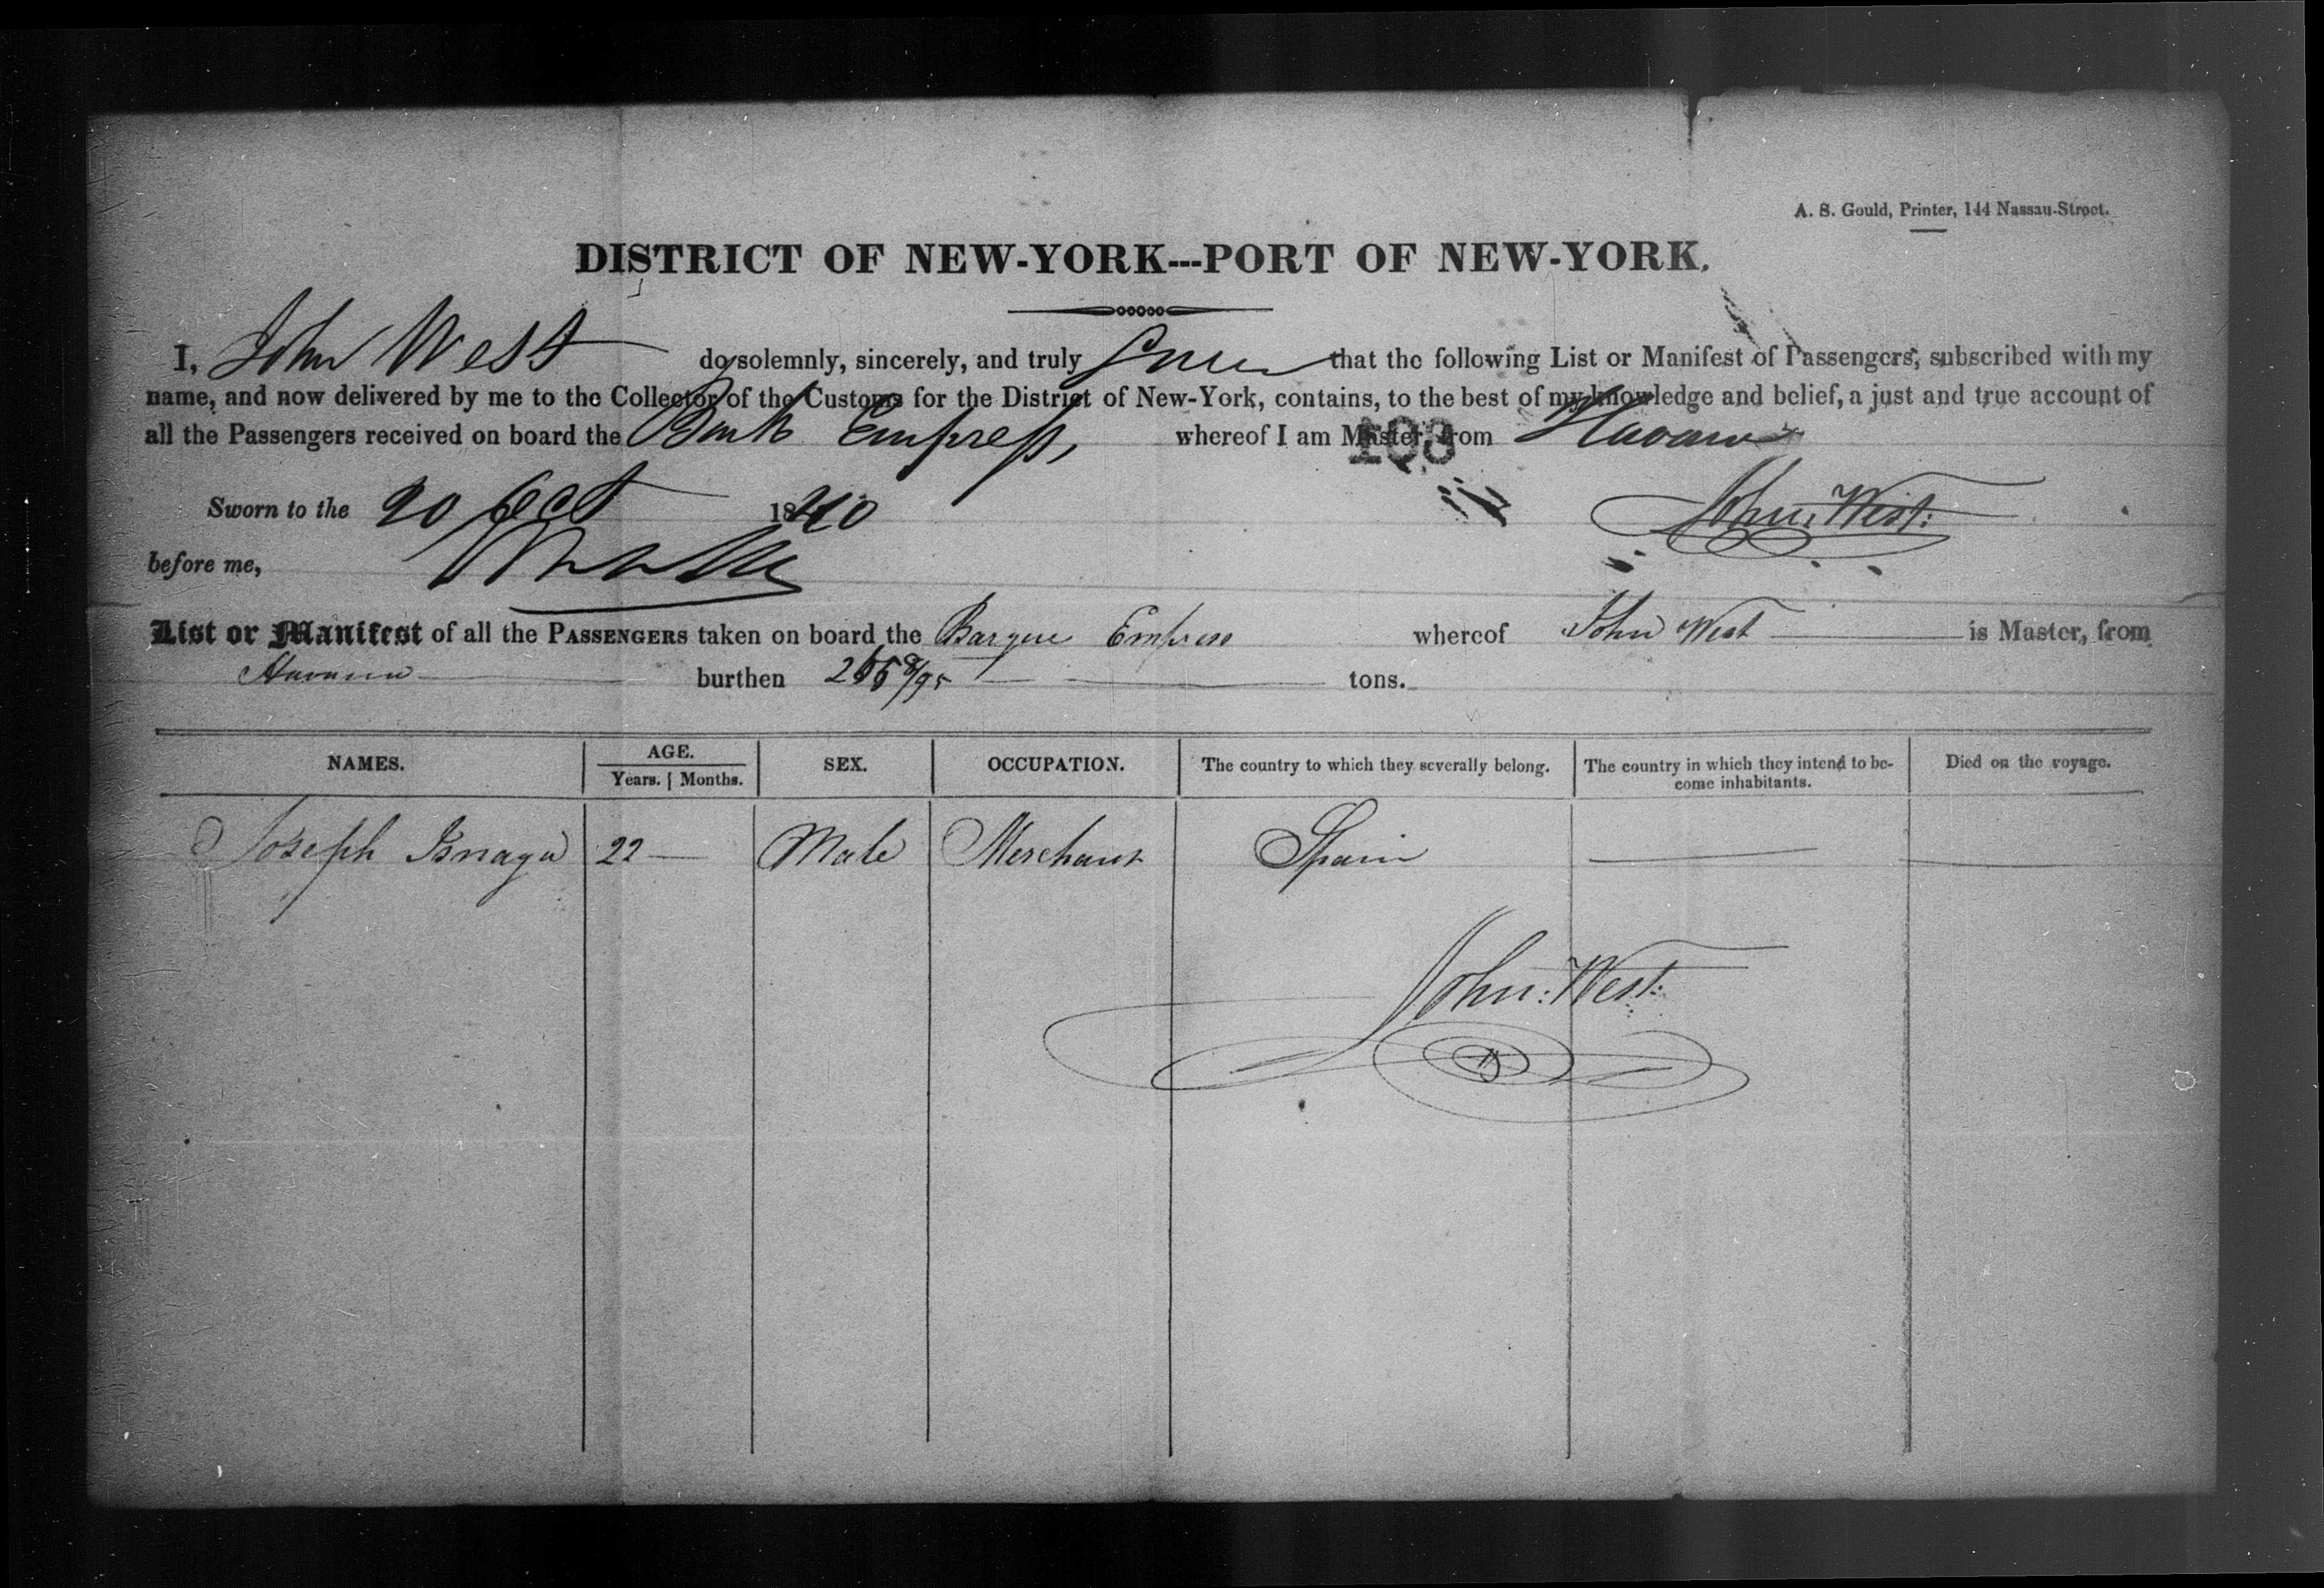 A. S. Gould, Printer, 144 Nassau-Street.
DISTRICT OF NEW-YORK---PORT OF NEW-YORK.
I, John West do solemnly, sincerely, and truly that the following List or Manifest of Passengers, subscribed with my
name, and now delivered by me to the Collector of the Customs for the District of New-York, contains, to the best of my knowledge and belief, a just and true account of
all the Passengers received on board the Bark Empress, whereof I am Master, from Havana
108
Sworn to the 20 Oct 1840 John West
before me,
List or Manifest of all the PASSENGERS taken on board the Barque Empress whereof John West is Master, from
Havana burthen tons.
NAMES. AGE. Years. Months. SEX. OCCUPATION. The country to which they severally belong. The country in which they intend to become inhabitants. Died on the voyage.
Joseph Isnaga 22 — Male Merchant Spain — —
John West